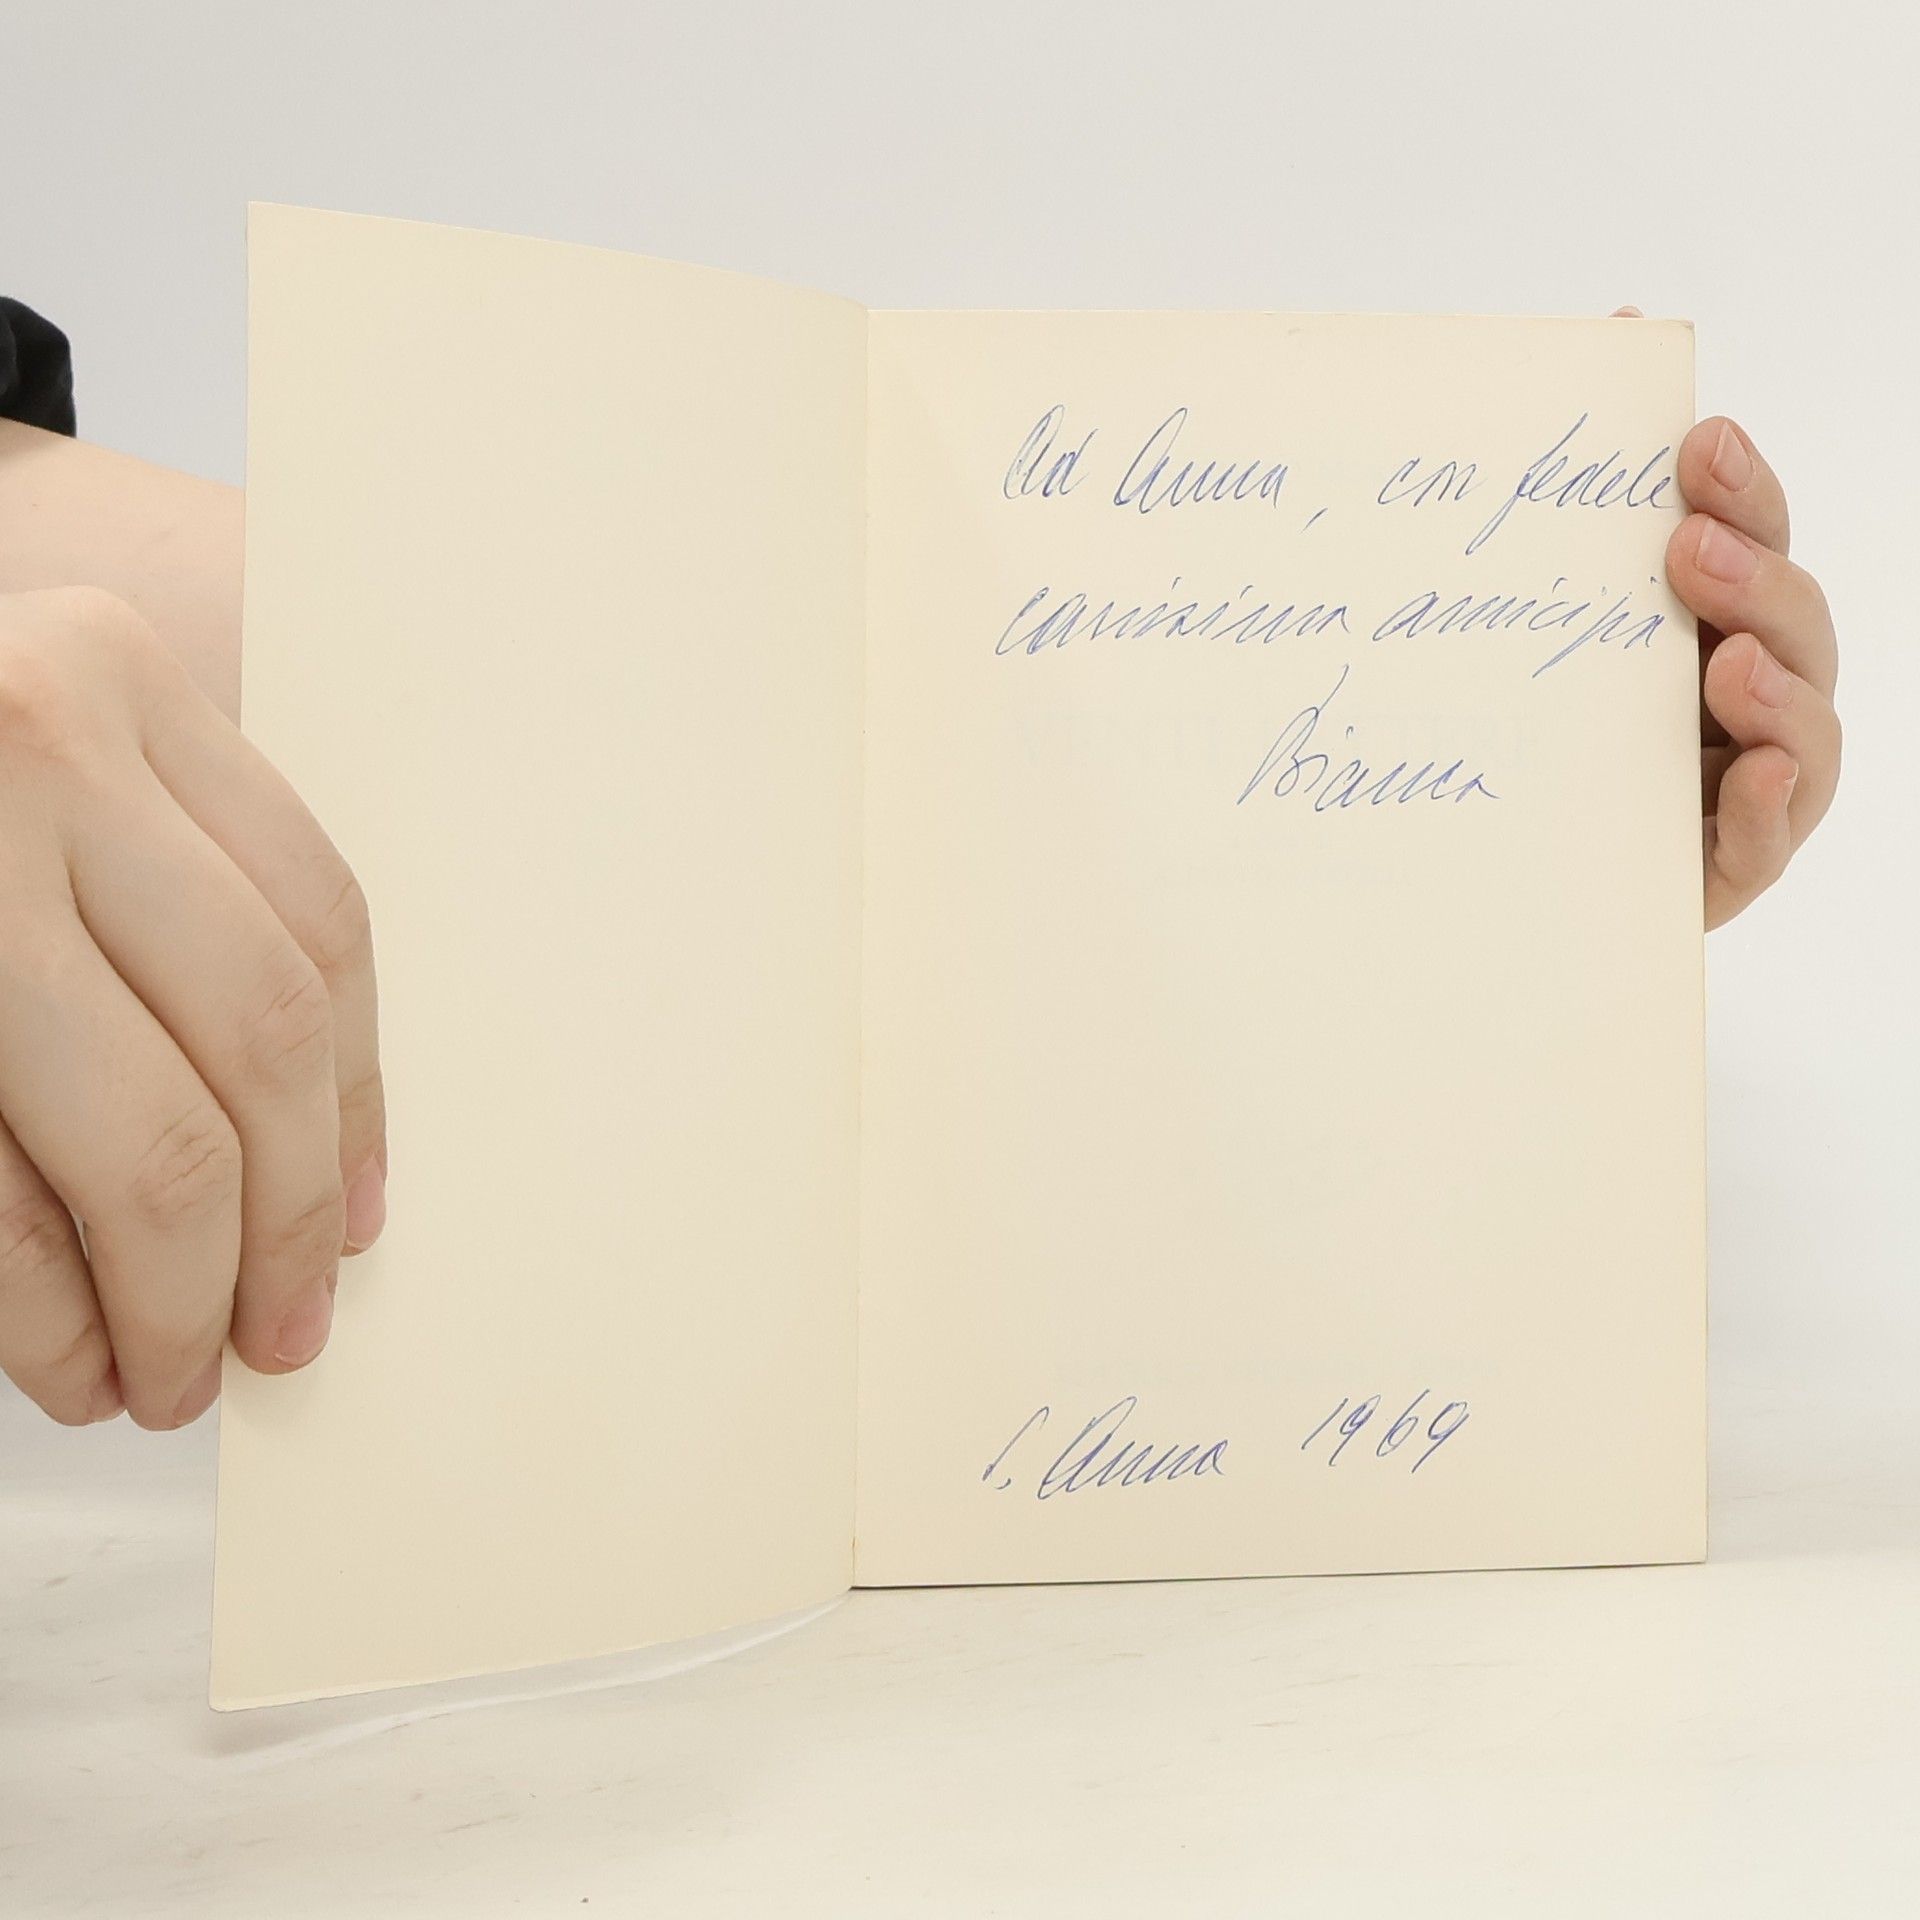 Ad Anna, con fedele
carissima amicizia
Bianca
S. Anna 1969